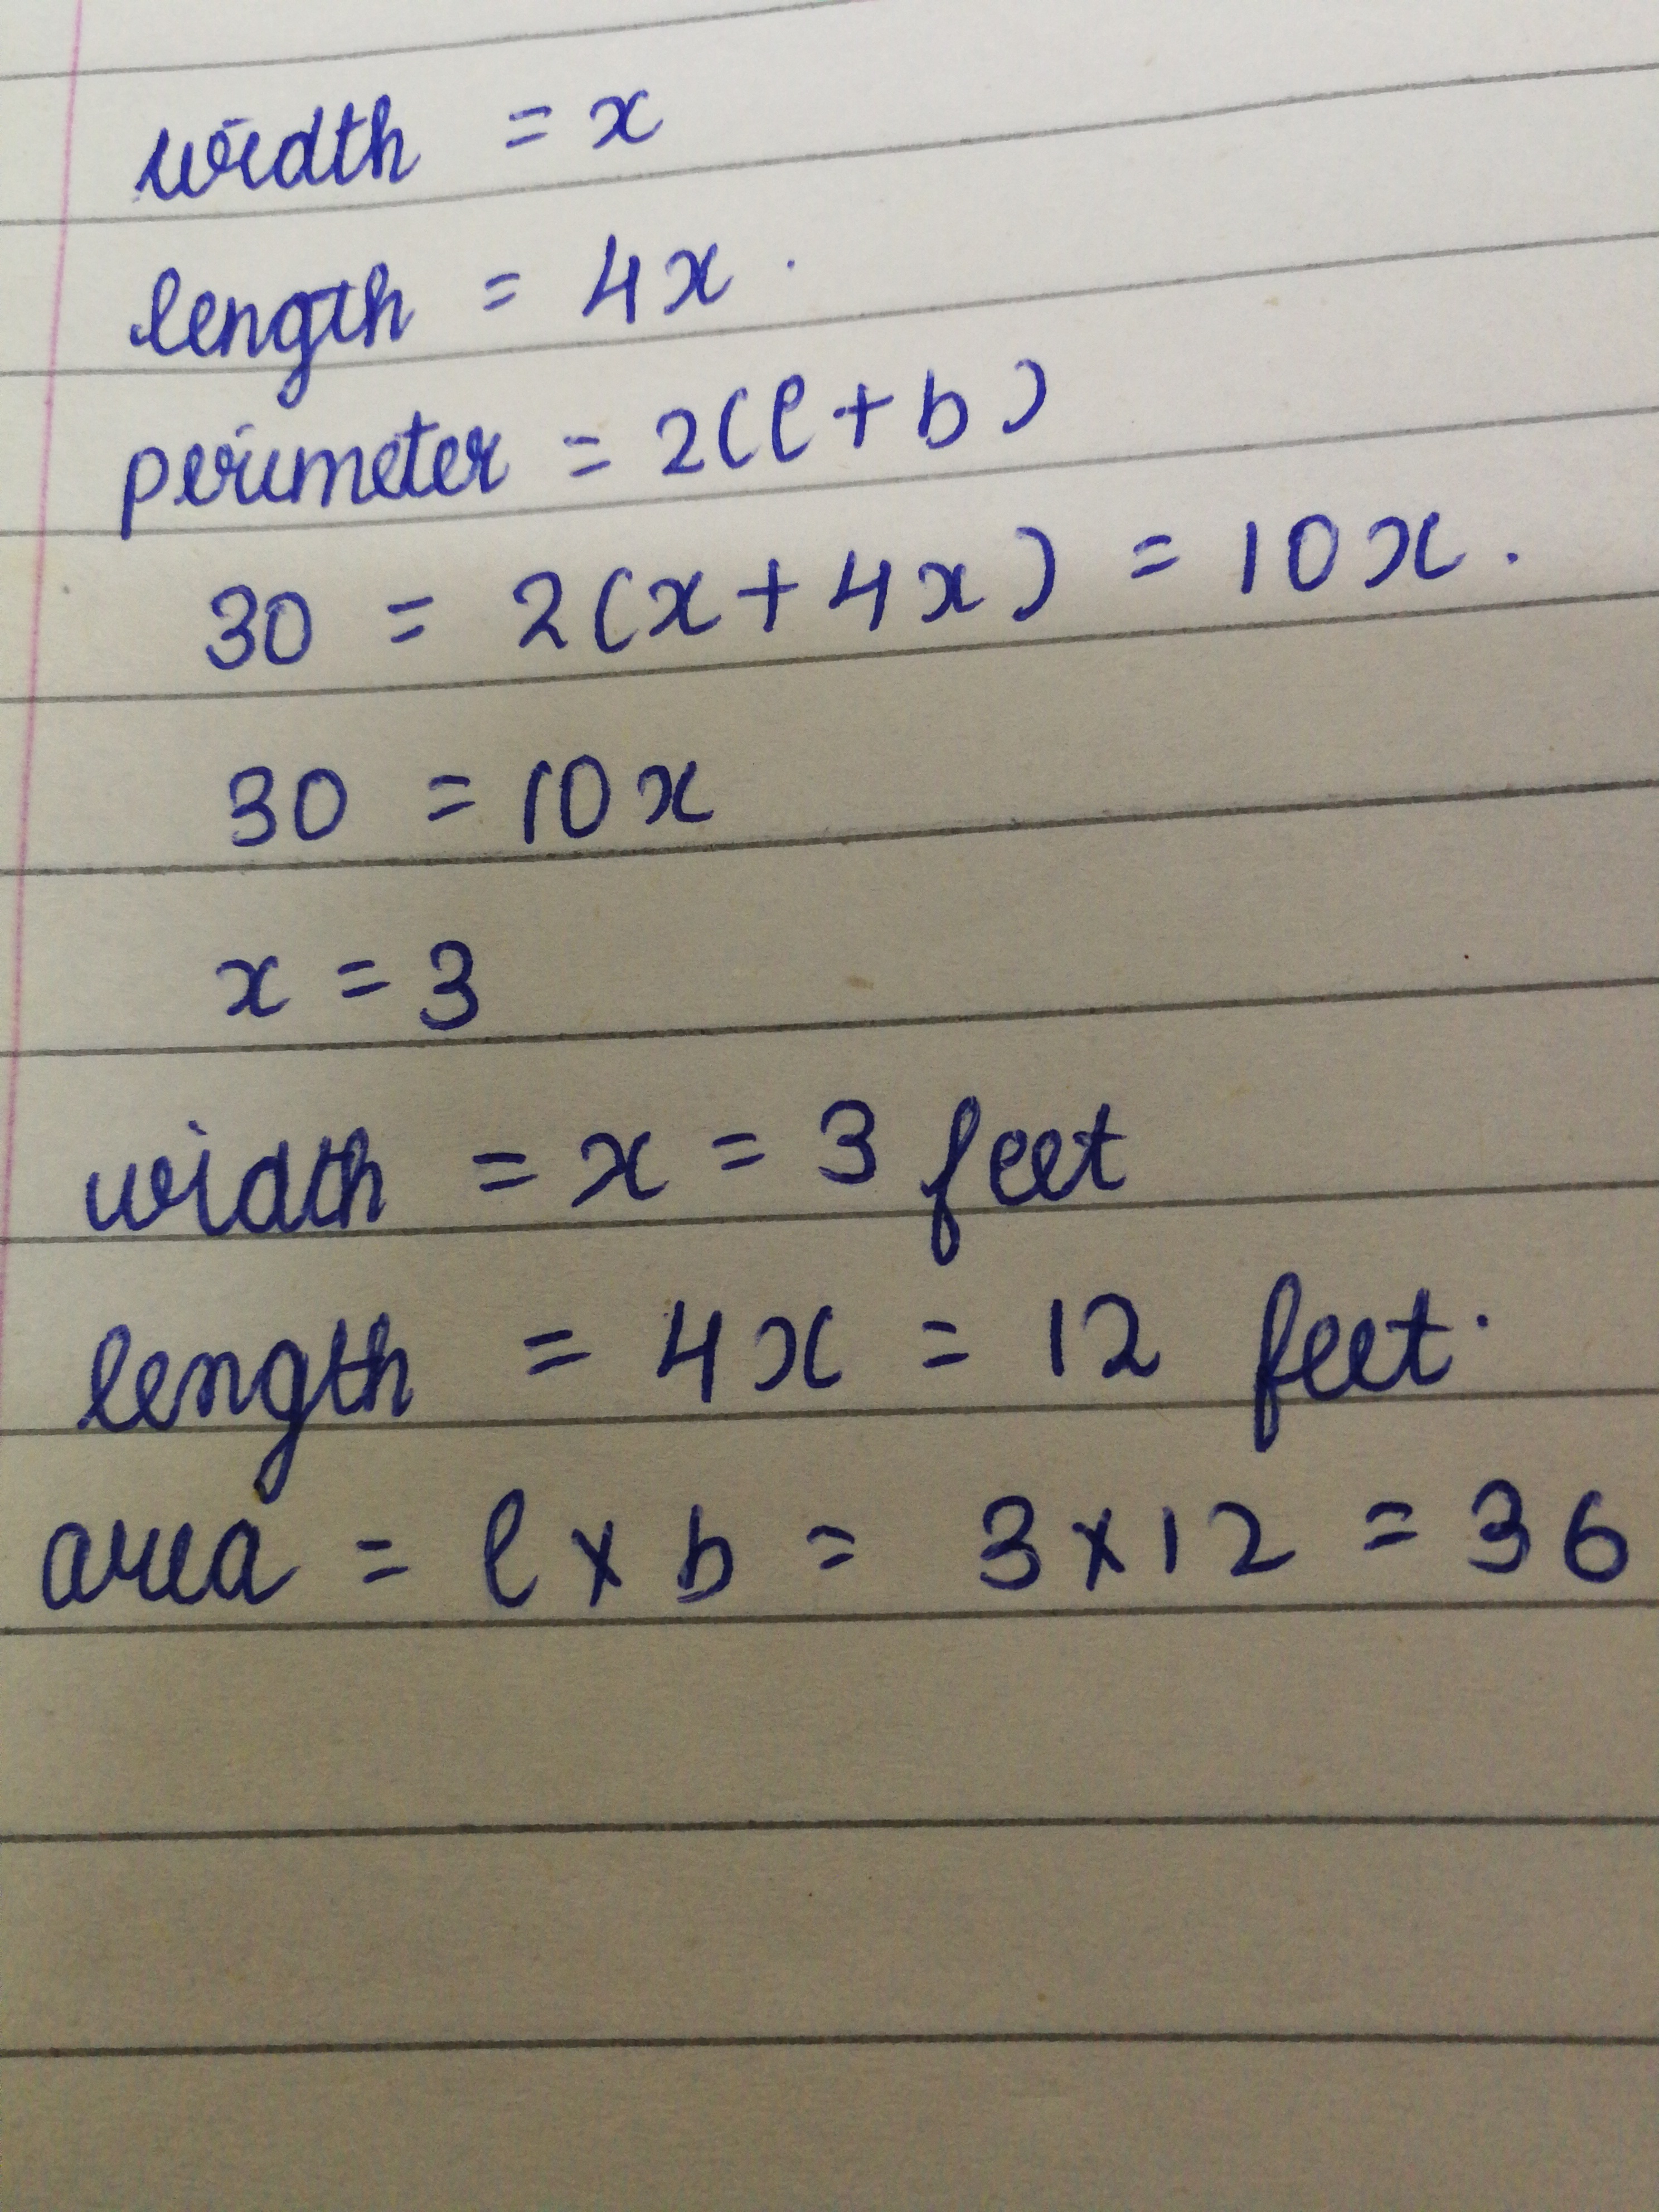 width = x
length = 4x.
perimeter = 2(l+b)
30 = 2(x+4x) = 10x.
30 = 10x
x = 3
width = x = 3 feet
length = 4x = 12 feet.
area = l x b = 3x12 = 36